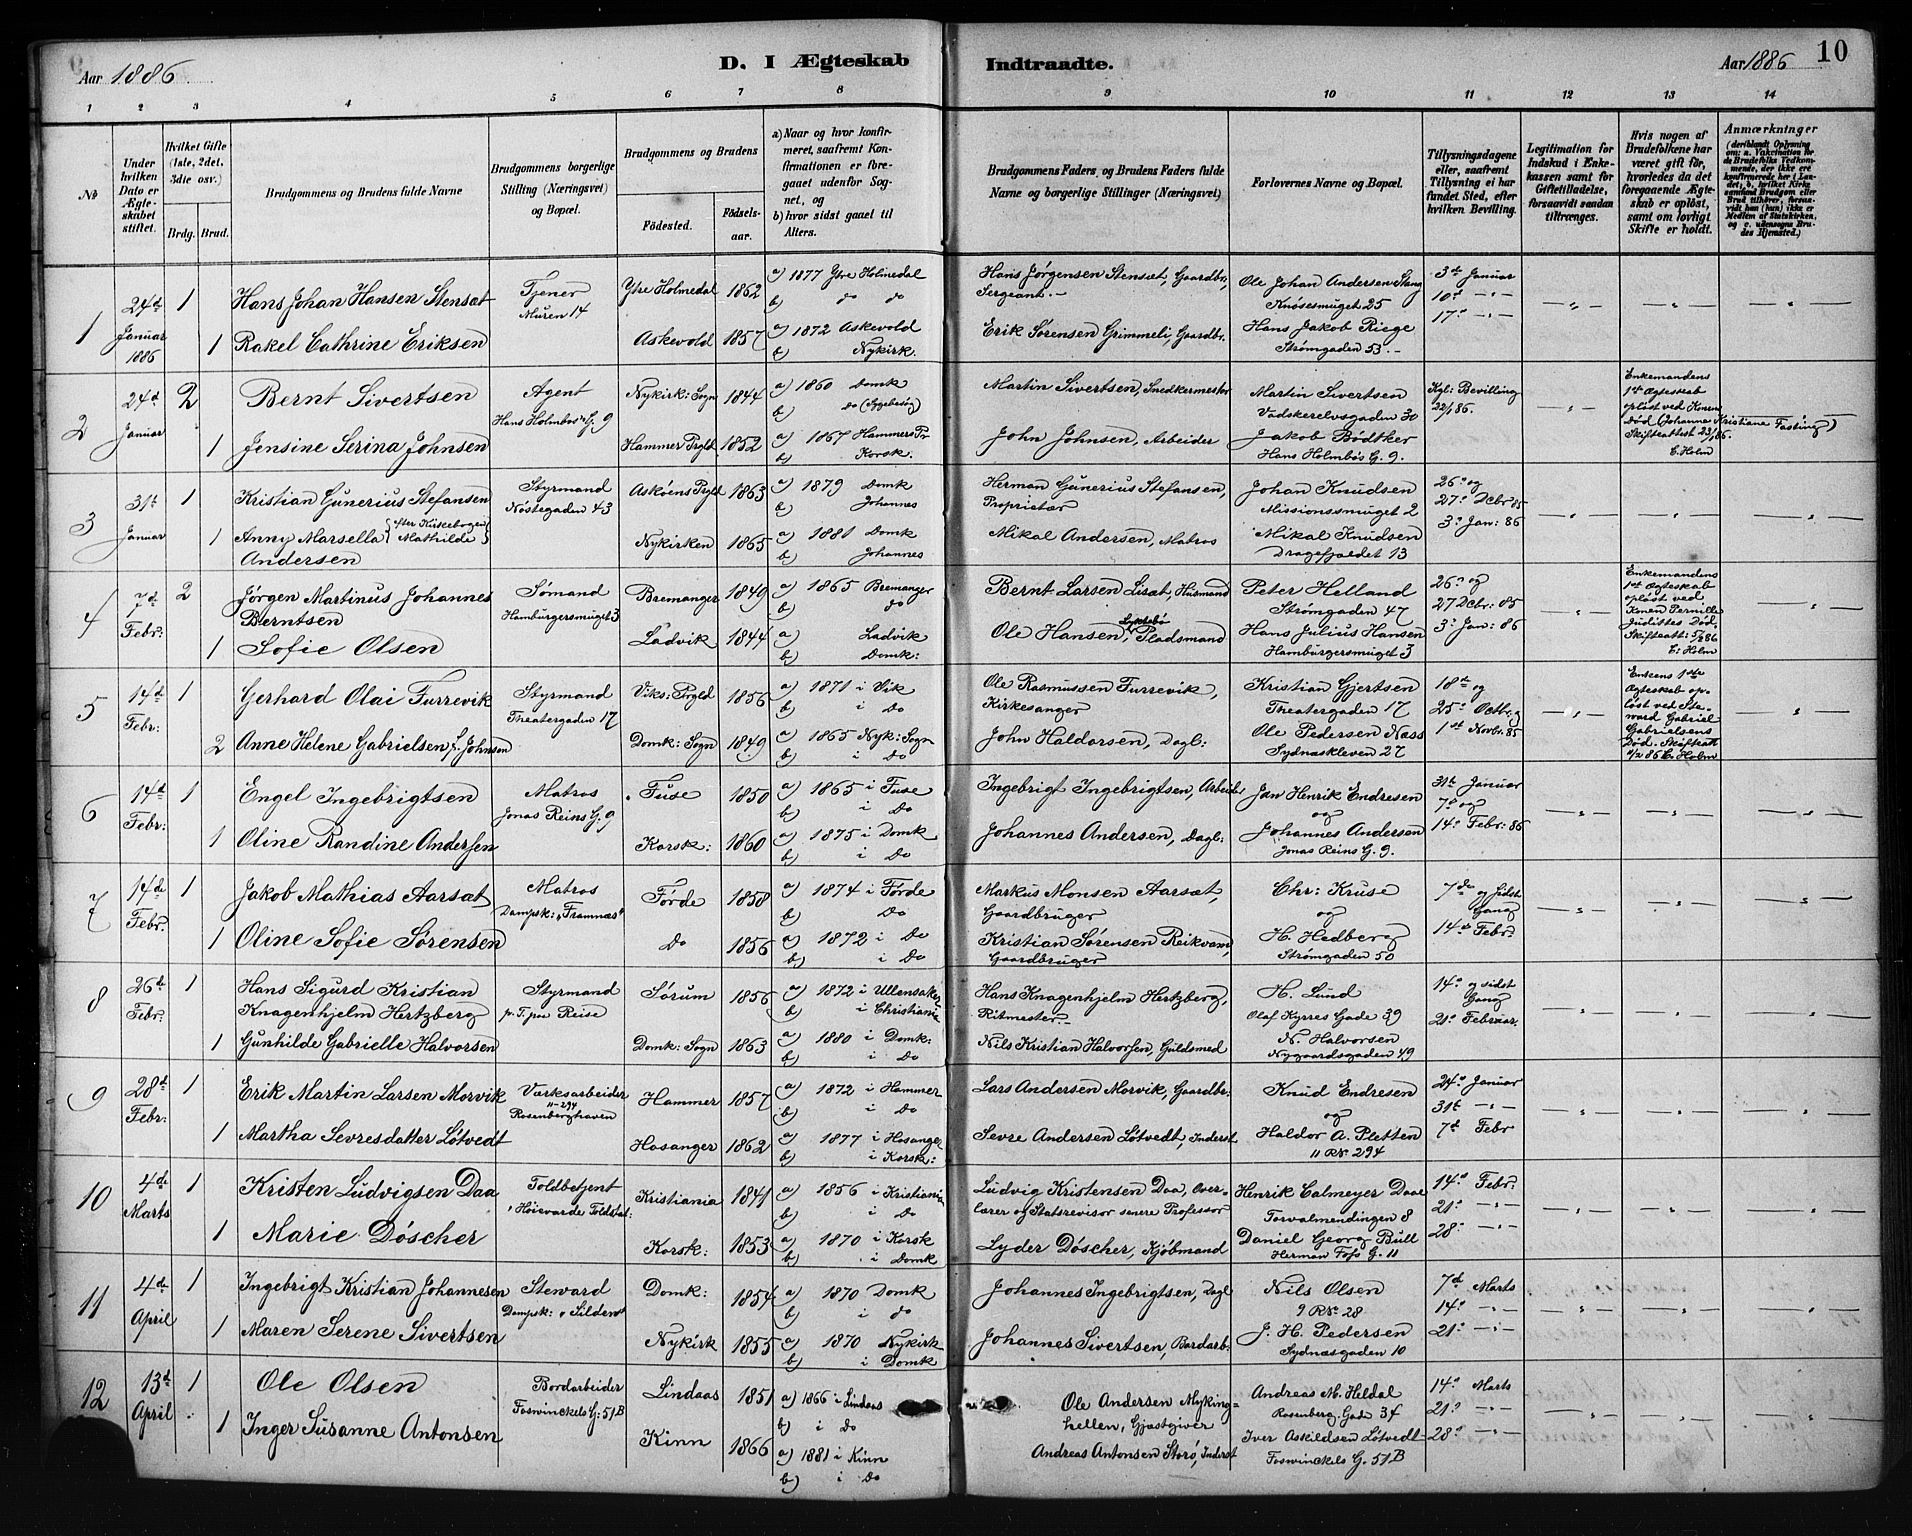 Aar 1886
D. I Ægteskab Indtraadte.
Aar 1886
10
1 2 3 4 5 6 7 8 9 10 11 12 13 14
No
Under hvilken Dato er Ægteskabet stiftet.
Hvilket Gifte (1ste, 2det, 3die osv.)
Brdg. Brud.
Brudgommens og Brudens fulde Navne
Brudgommens borgerlige Stilling (Næringsvei) og Bopæl.
Brudgommens og Brudens
Födested.
Födselsaar.
a) Naar og hvor konfirmeret, saafremt Konfirmationen er foregaaet udenfor Sognet, og
b) hvor sidst gaaet til Alters.
Brudgommens Faders og Brudens Faders fulde Navne og borgerlige Stillinger (Næringsvei)
Forlovernes Navne og Bopæl.
Tillysningsdagene eller, saafremt Tillysning ei har fundet Sted, efter hvilken Bevilling.
Legitimation for Indskud i Enkekassen samt for Giftetilladelse, forsaavidt saadan tiltrænges.
Hvis nogen af Brudefolkene har været gift før, hvorledes da det foregaaende Ægteskab er opløst, samt om lovligt Skifte er holdt.
Anmærkninger
1 24d Januar 1886 1 Hans Johan Hansen Stensæt Tjener Muren 14 Ytre Holmedal 1862 a) 1877 Ytre Holmedal b) do do Hans Jørgensen Stensæt, Gaardbr, Sergeant.- Ole Johan Andersen Stang Knøsesmuget 25 3d Januar 10d -"- 17d -"-
1 Rakel Cathrine Eriksen Askevold 1857 a) 1872 Askevold b) Nykirk. Erik Sørensen Grimmeli, Gaardbr. Hans Jakob Riege Strømgaden 53.-
2 24d Januar 2 Bernt Sivertsen Agent Hans Holmbos G. 9 Nykirk: Sogn 1844 a) 1860 Domk b) Do (Sygebesøg) Martin Sivertsen, Snedkermester Martin Sivertsen Vadskerelvsgaden 30 Kgl: Bevilling 22/1 86. Enkemandens 1ste Ægteskab opløst ved Konens Død (Johanne Kristiane Fasting) Skifteattest 23/1 86. C. Holm
1 Jensine Serina Johnsen Hammer Prgld 1852 a) 1867 Hammers Pr b) Korsk. John Johnsen, Arbeider Jakob Bødtker Hans Holmbos G. 9.
3 31te Januar 1 Kristian Gunerius Stefansen Styrmand Nøstegaden 43 Askøens Prgld 1863 a) 1879 Domk b) Johannes Herman Gunerius Stefansen, Proprietær Johan Knudsen Missionssmuget 2 26d og 27d Dcbr 85 3d Jan: 86
1 Anny Marsella (efter Kirkebogen Mathilde) Andersen Nykirken 1865 a) 1881 Domk b) Johannes Mikal Andersen, Matros Mikal Knudsen Dragefjældet 13
4 7d Febr: 2 Jørgen Martinus Johannes Berntsen Sømand Hamburgersmuget 3 Bremanger 1849 a) 1865 Bremanger b) do Bernt Larsen Lisæt, Husmand Peter Helland Strømgaden 47 26d og 27 Dcbr: 85 3d Jan: 86 Enkemandens 1ste Ægteskab opløst ved Konen Pernille Juditstes Død Skifteatt: 5/2 86 C: Holm
1 Sofie Olsen Ladvik 1844 a) Ladvik b) Domk: Ole Hansen, Pladsmand Hans Julius Hansen Hamburgersmuget 3
5 14d Febr: 1 Gerhard Olai Furrevik Styrmand Theatergaden 17 Viks: Prgld 1856 a) 1871 i Vik b) i Do Ole Rasmussen Furrevik, Kirkesanger Kristian Gjertsen Theatergaden 17 18de og 25d Octbr. og 1st Novbr. 85 Enkens 1ste Ægteskab opløst ved Steward Gabriel Gabrielsens Død. Skifteatt 11/2 86 C. Holm
2 Anne Helene Gabrielsen f. Johnsen Domk: Sogn 1849 a) 1865 Nyk: Sogn b) i Do John Haldorsen, Dagl: Ole Pedersen Næss Sydnæskleven 27
6 14d Febr: 1 Engel Ingebrigtsen Matros Jonas Reins G. 9 Fuse 1850 a) 1865 i Fuse b) i Do Ingebrigt Ingebrigtsen, Arbeider Jan Henrik Endresen og 31te Januar 7d og 14d Febr: 86
1 Oline Randine Andersen Korsk: 1860 a) 1875 i Domk b) i Do Johannes Andersen, Dagl: Johannes Andersen Jonas Reins G. 9.
7 14de Febr: 1 Jakob Mathias Aarsæt Matros Dampsk: "Framnæs" Førde 1858 a) 1874 i Førde b) Do Markus Monsen Aarsæt, Gaardbruger Chr: Kruse og 7de og sidste Gang 14d Febr:
1 Oline Sofie Sørensen Do 1856 a) 1872 i Do b) i Do Kristian Sørensen Reikvam, Gaardbruger H. Hedberg Strømgaden 50
8 26de Febr: 1 Hans Sigurd Kristian Knagenhjelm Hertzberg Styrmand p. T. paa Reise Sørum 1856 a) 1872 i Ullensaker b) i Christiania Hans Knagenhjelm Hertzberg, Ritmester.- H. Lund Olaf Kyrres Gade 39 14d og sidst Gang 21d Februar.
1 Gunhilde Gabrielle Halvorsen Domk: Sogn 1863 a) 1880 i Domk: b) i Do Nils Kristian Halvorsen, Guldsmed N. Halvorsen Nygaardsgaden 49
9 28de Febr: 1 Erik Martin Larsen Morvik Værksarbeider 11-294 Rosenberghaven Hammer 1857 a) 1872 i Hammer b) i Do Lars Andersen Morvik, Gaardbr. Knud Endresen og 24d Januar 31te -"- 7d Febr
1 Martha Sevresdatter Løtvedt Hosanger 1862 a) 1877 i Hosanger b) i Korsk: Sevre Andersen Løtvedt, Inderst Haldor A. Pletten 11 RN. 294
10 4de Marts 1 Kristen Ludvigsen Daa Toldbetjent Høievarde Toldstat: Kristiania 1841 a) 1856 i Kristiania b) i Do Ludvig Kristensen Daa, Overlærer og Statsrevisor senere Professor Henrik Calmeyer Daae Torvalmendingen 8 14d Febr: 21d -"- 28d -"-
1 Marie Døscher Korsk: 1853 a) 1870 i Korsk b) i Domk Lyder Døscher, Kjøbmand Daniel Georg Bull Herman Foss G. 11
11 4de April 1 Ingebrigt Kristian Johannesen Steward Dampsk: "Silden" Domk: 1854 a) 1870 Domk b) i do Johannes Ingebrigtsen, Dagl Nils Olsen 9 RN. 28 7d Marts 14d -"- 21d -"-
1 Maren Serene Sivertsen Nykirk 1855 a) 1870 Nykirk b) i Domk Johannes Sivertsen, Bordarb. J. H. Pedersen Sydnæsgaden 10
12 13d April 1 Ole Olsen Bordarbeider Foswinckels G. 51B Lindaas 1851 a) 1866 i Lindaas b) i Do Ole Andersen Mykinghellen, Gjæstgiver Andreas M. Heldal Rosenberg. Gade 34 14d Marts 21d -"- 28d -"-
1 Inger Susanne Antonsen Kinn 1866 a) 1881 i Kinn b) i Do Andreas Antonsen Storø, Inderst Iver Askildsen Løtvedt Foswinckels G. 51B